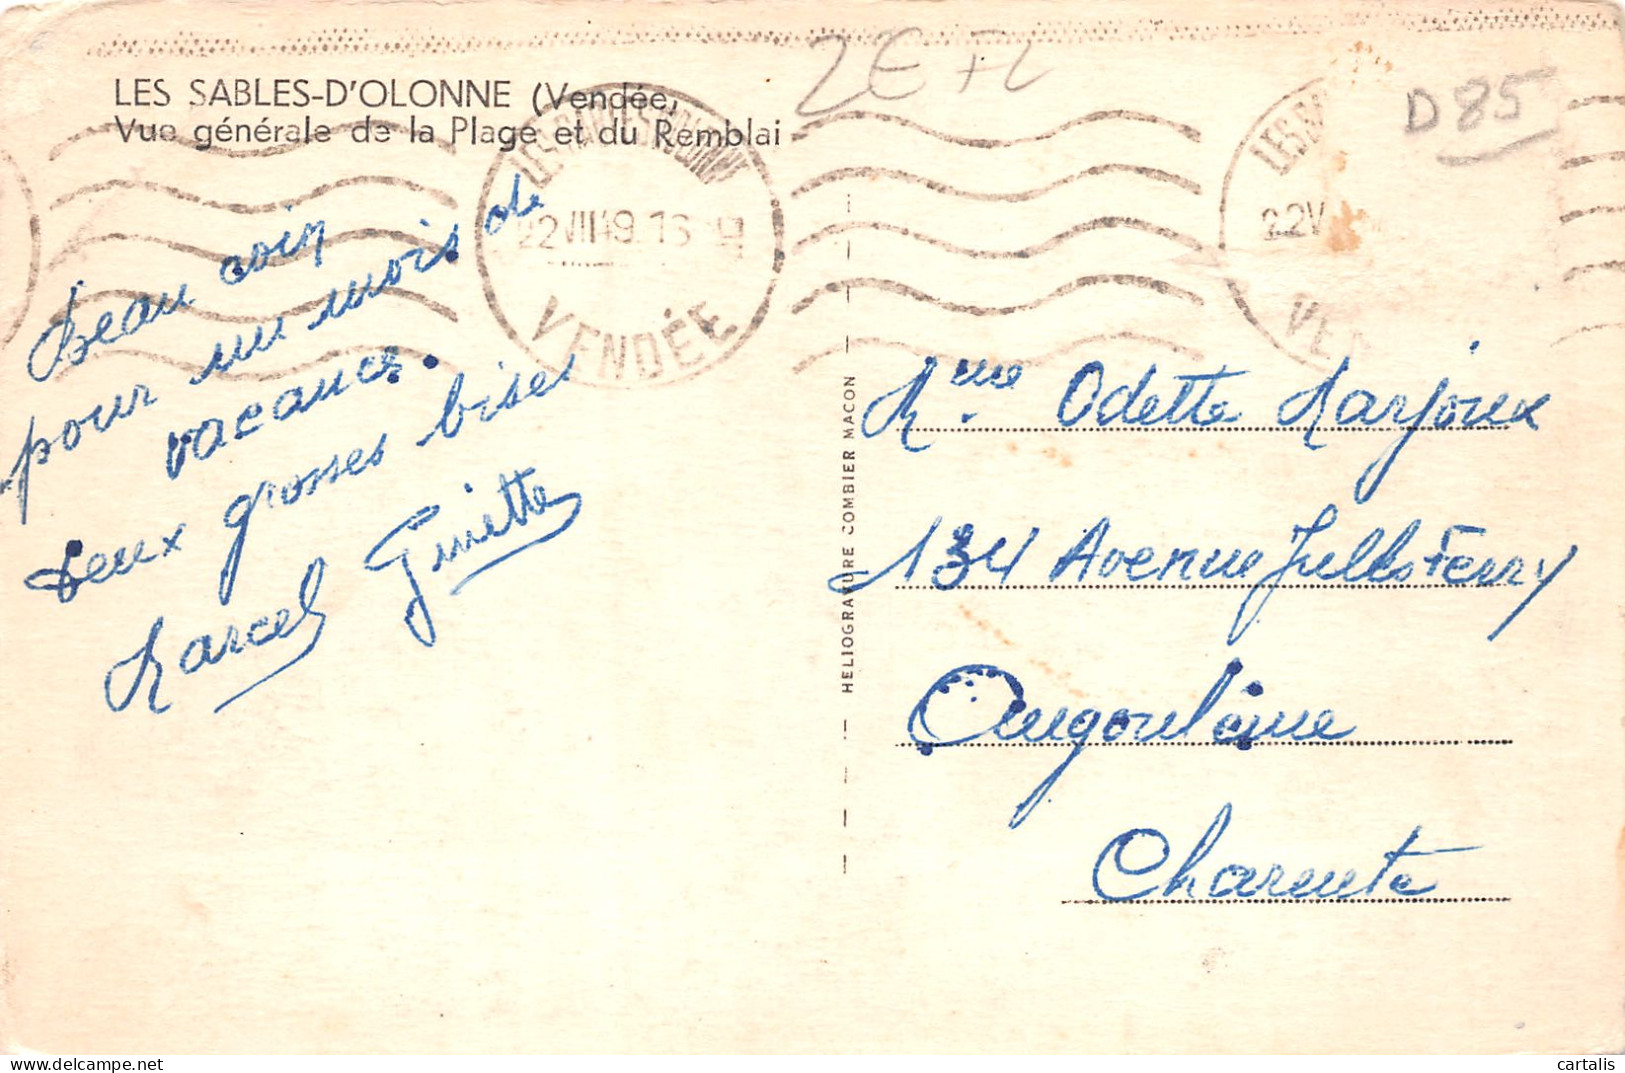 LES SABLES-D'OLONNE (Vendée)
Vue générale de la Plage et du Remblai
2E FL
D 85
LES SABLES D'OLONNE
22 VIII 49 16 H
VENDÉE
LES S
22 V
VE
Beau coin
pour un mois de
vacances.
Deux grosses bises
Marcel Ginette
HELIOGRAVURE COMBIER MACON
Mme Odette Marjoux
134 Avenue Jules Ferry
Angoulême
Charente
cartalis